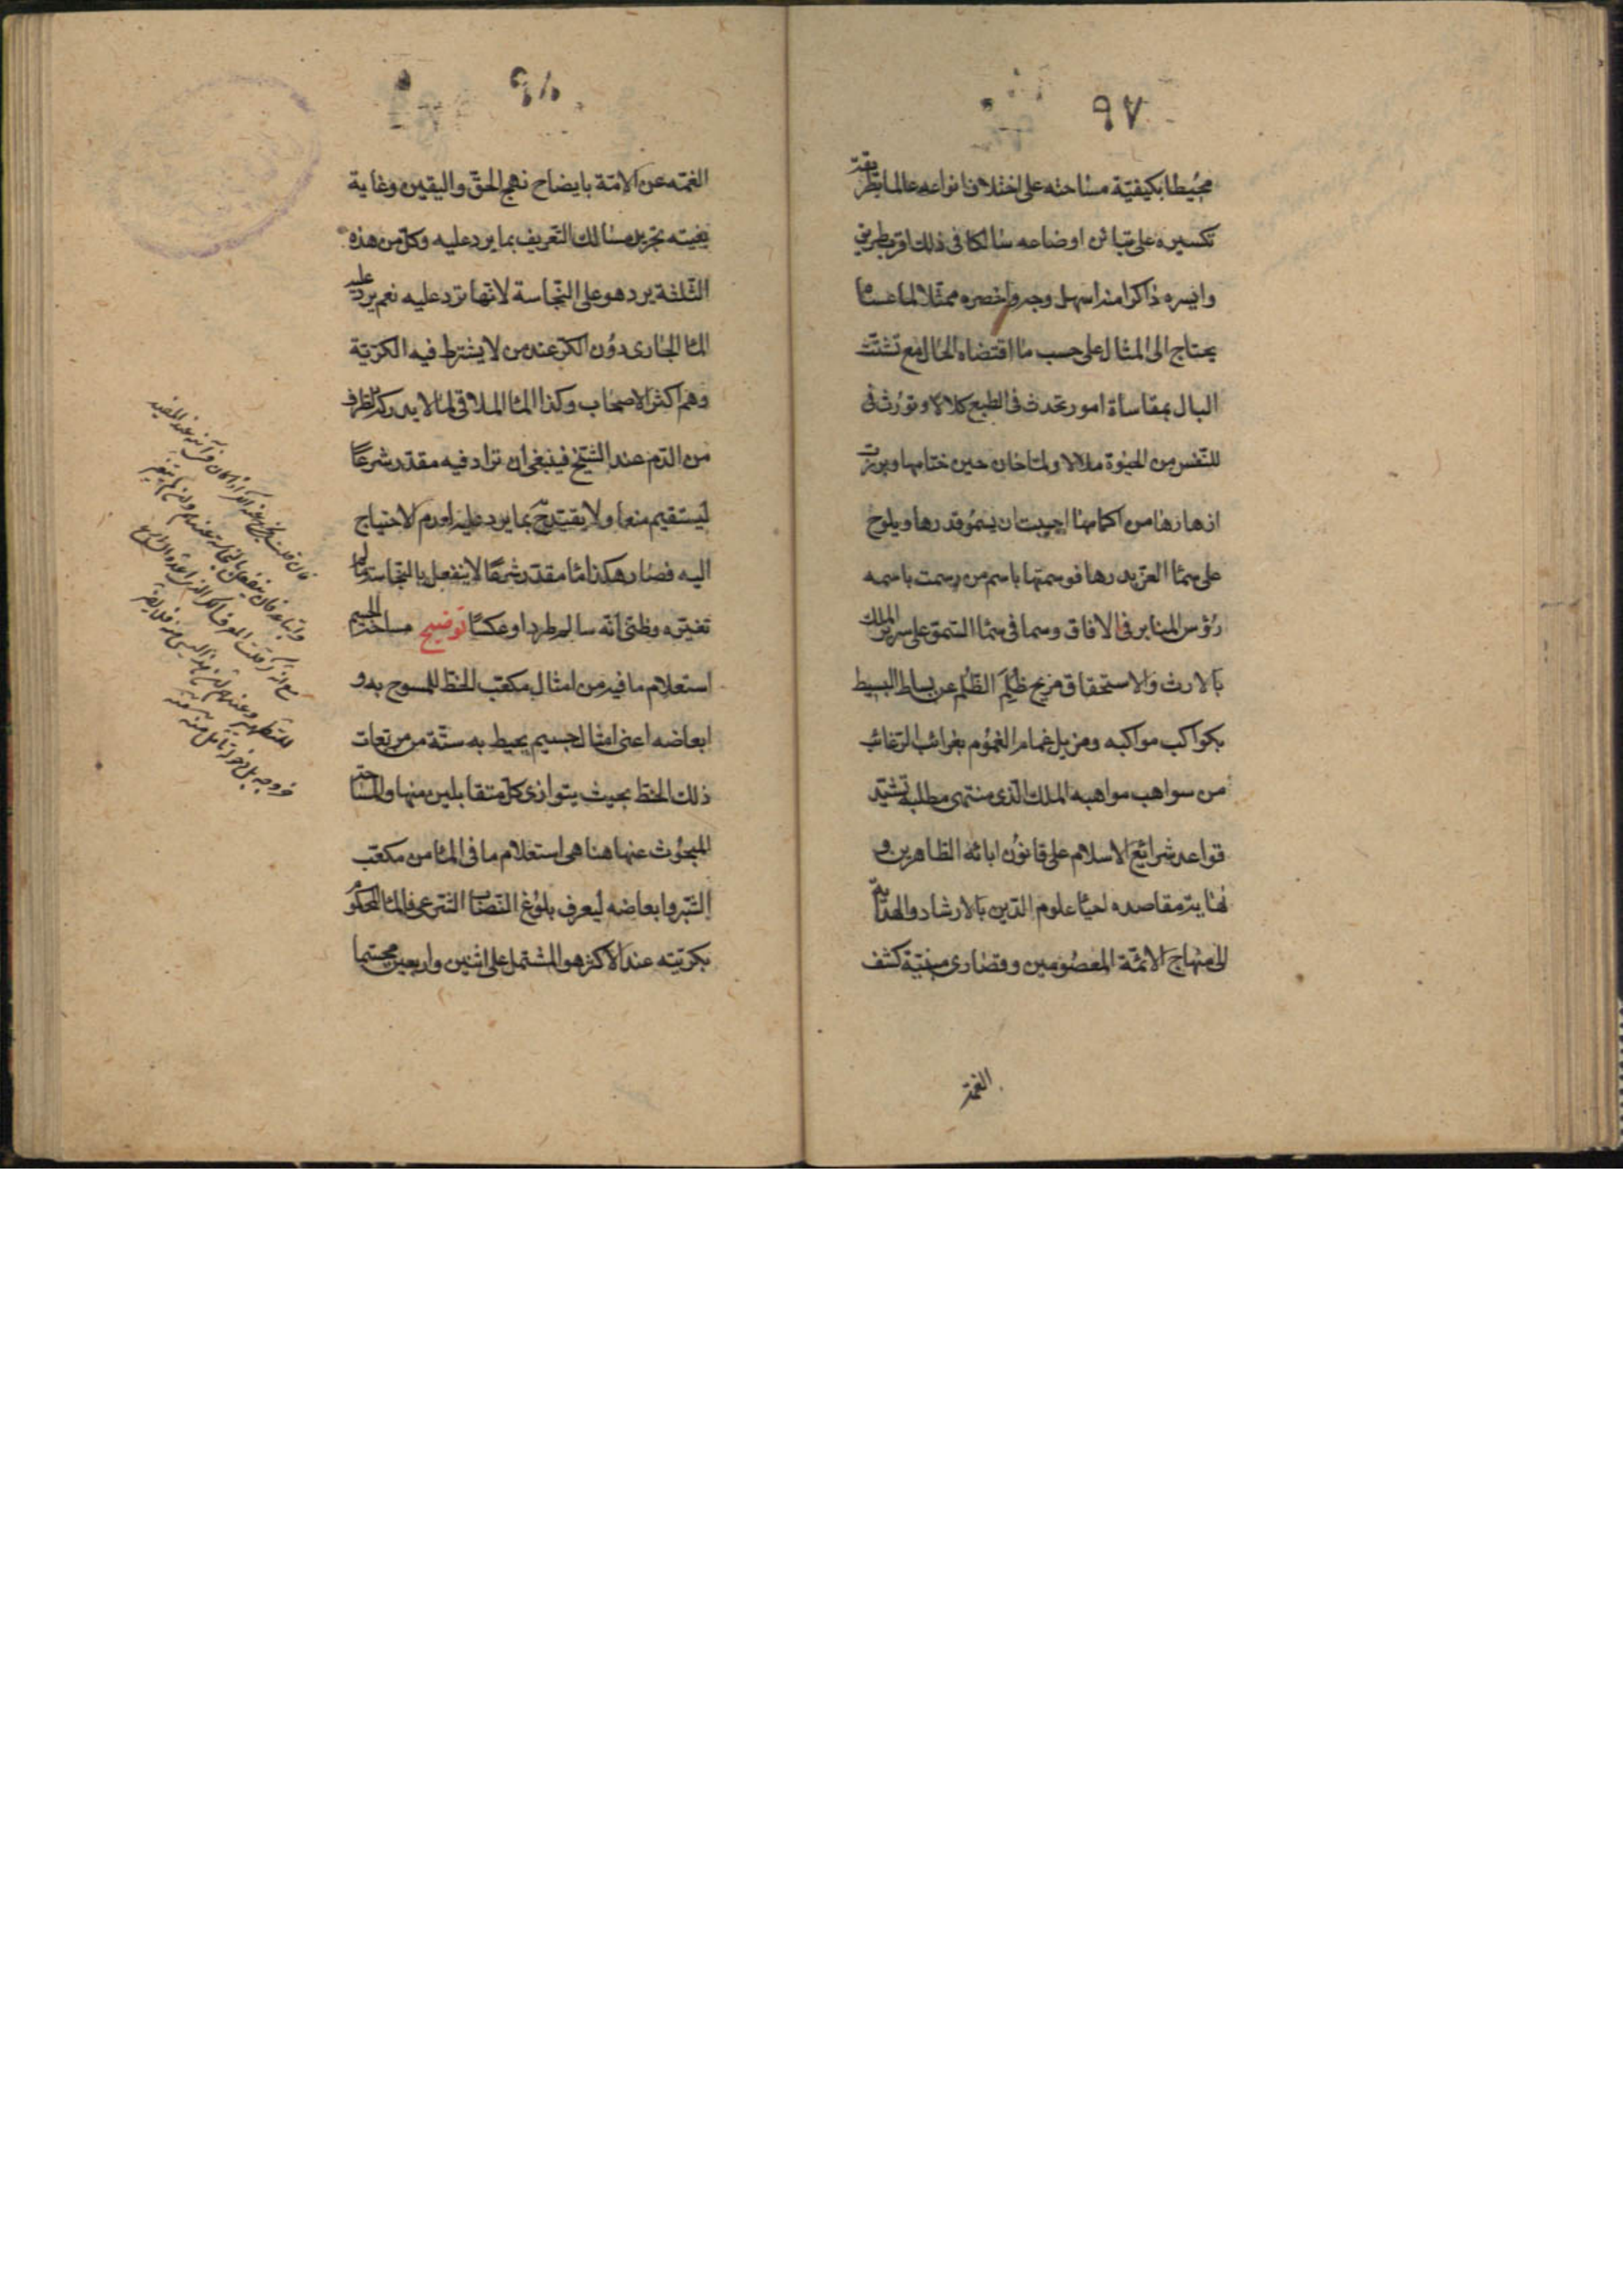 ٩٧
محيطا بكيفيّة مساحته على اختلاف انواعه عالما بطريقة
تكسيره على تباين اوضاعه سالكا فى ذلك اقرب طريق
وايسره ذاكرا منه اسهل وجه واخصره ممثلا لما عساه
يحتاج الى المثال على حسب ما اقتضاه الحال مع تشتّت
البال بمقاساة امور تحدث فى الطبع كلالا وتورث فى
للنّفس من الحيوة ملالا ولمّا حان حين ختامها وبرزت
ازهارها من اكمامها احببت ان يسمو قدرها ويلوح
على سماء العز بدرها فوسمتها باسم من رسمت باسمه
رؤس المنابر فى الافاق وسما فى سماء السّمو على سرير الملك
بالارث والاستحقاق مزيح ظُلَم الظّلم عن بساط البسيط
بكواكب مواكبه ومزيل غمام الغموم بغرائب الرغائب
من سواهب مواهبه الملك الّذى منتهى مطلبه تشييد
قواعد شرائع الاسلام على قانون ابائه الطاهرين و
نهاية مقاصده احياء علوم الدّين بالارشاد والهداية
الى منهاج الائمّة المعصومين وقصارى منيته كشف
الغمّة
٩٨
الغمّه عن الامّة بايضاح نهج الحقّ واليقين وغاية
بغيته تحرير مسالك التّعريف بما يرد عليه وكلّ من هذه
الثّلثة يرد هو على النّجاسة لا انّها ترد عليه نعم يرد عليه
الماء الجارى دون الكرّ عند من لا يشترط فيه الكريّة
وهم اكثر الاصحاب وكذا الماء الملاقى لما لا يدركه الطرف
من الدّم عند الشّيخ فينبغى ان تزاد فيه مقدّر شرعاً
ليستقيم منعا ولا يقتدح بما يرد عليه لعدم الاحتياج
اليه فصار هكذا ماء مقدّر شرعًا لا ينفعل بالنّجاسة لما
تغيّره وظنّى انّه سالم طردا وعكسًا توضيح مساحة الجسم
استعلام ما فيه من امثال مكعّب الخطّ الممسوح به و
ابعاضه اعنى امثال جسيم يحيط به ستّة من مربّعات
ذلك الخطّ بحيث يتوازى كلّ متقابلين منها والمساحة
المبحوث عنها هنا هى استعلام ما فى الماء من مكعّب
الشّبر وابعاضه ليعرف بلوغ النّصاب الشّرعى فالماء المحكوم
بكريّته عند الاكثر هو المشتمل على اثنين واربعين مجسّما